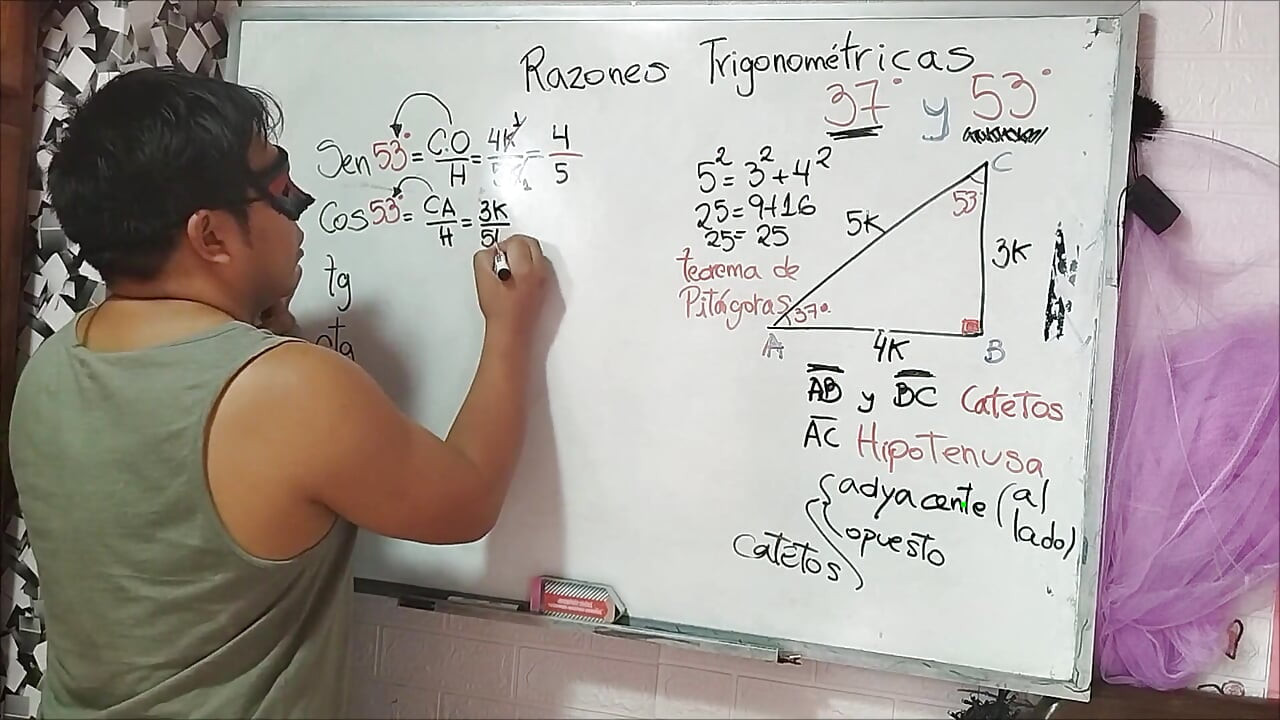 Razones Trigonométricas
37° y 53°
Sen 53° = C.O/H = 4K/5K = 4/5
Cos 53° = CA/H = 3K/5
tg
ctg
5² = 3² + 4²
25 = 9 + 16
25 = 25
teorema de
Pitágoras
C
53
5K
3K
37°
A
4K
B
AB y BC Catetos
AC Hipotenusa
Catetos
adyacente (al
lado)
opuesto